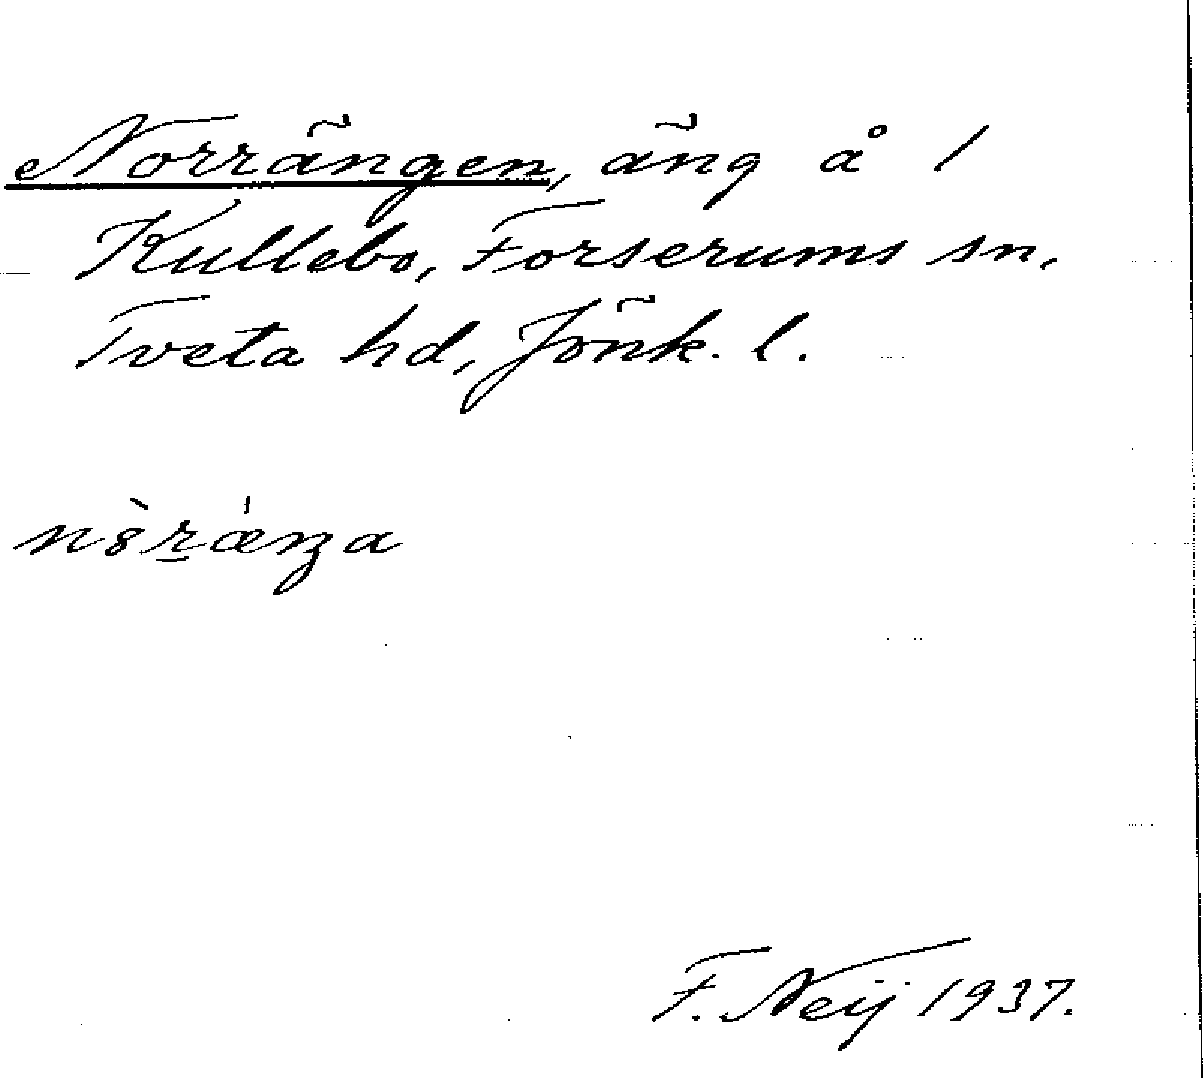 Norrängen, äng å 1
Kullebo, Forserums sn,
Tveta hd, Jönk. l.
F. Neij 1937.